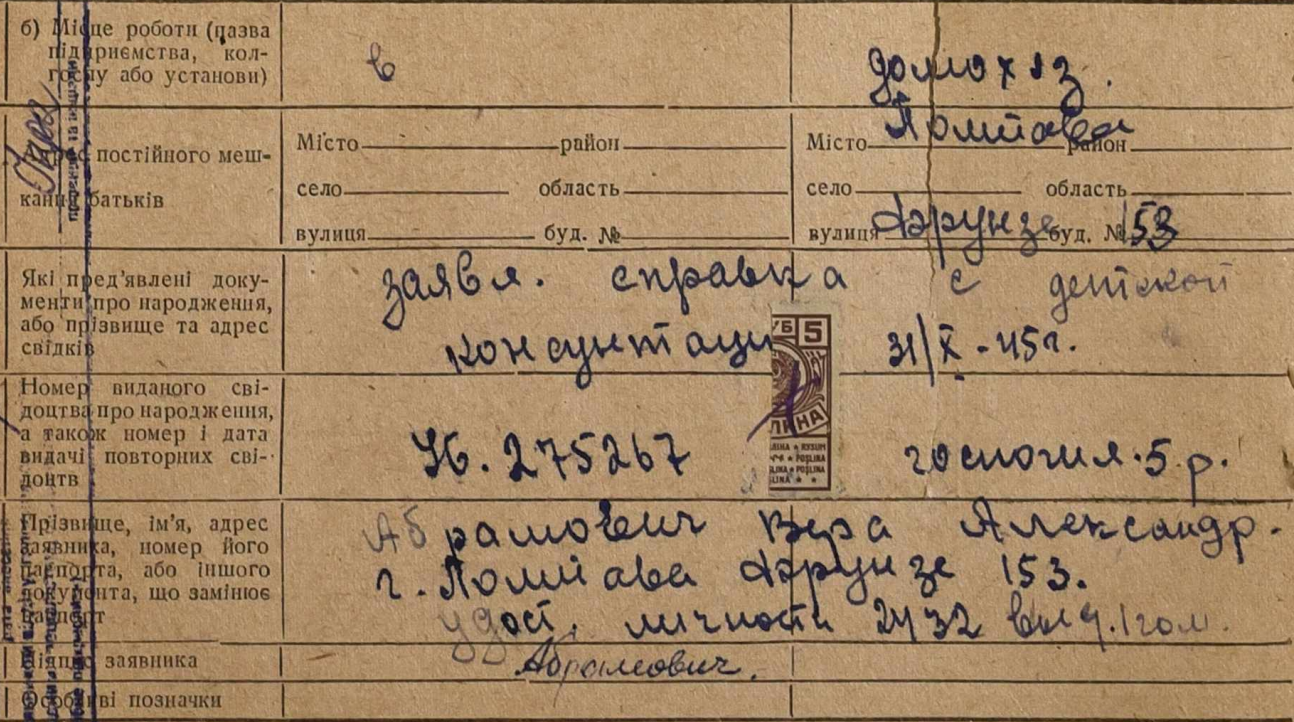 б) Місце роботи (назва
підприємства, кол-
госпу або установи)
в домохоз.
Адрес постійного меш-
кання батьків
Місто район
село область
вулиця буд. №
Місто Полтава район
село область
вулиця Фрунзе буд. № 153
Які пред'явлені доку-
менти про народження,
або прізвище та адрес
свідків
заявл. справка с детской
консунтаци 31/X-45г.
Номер виданого сві-
доцтва про народження,
а також номер і дата
видачі повторних сві-
доцтв
УБ. 275267 госпошл. 5 р.
УБ 5
Прізвище, ім'я, адрес
заявника, номер його
паспорта, або іншого
документа, що замінює
паспорт
Абрамович Вера Александр.
г. Полтава Фрунзе 153.
удост. личности 2432 выд. 1 гом.
Підпис заявника
Абрамович.
Особливі позначки